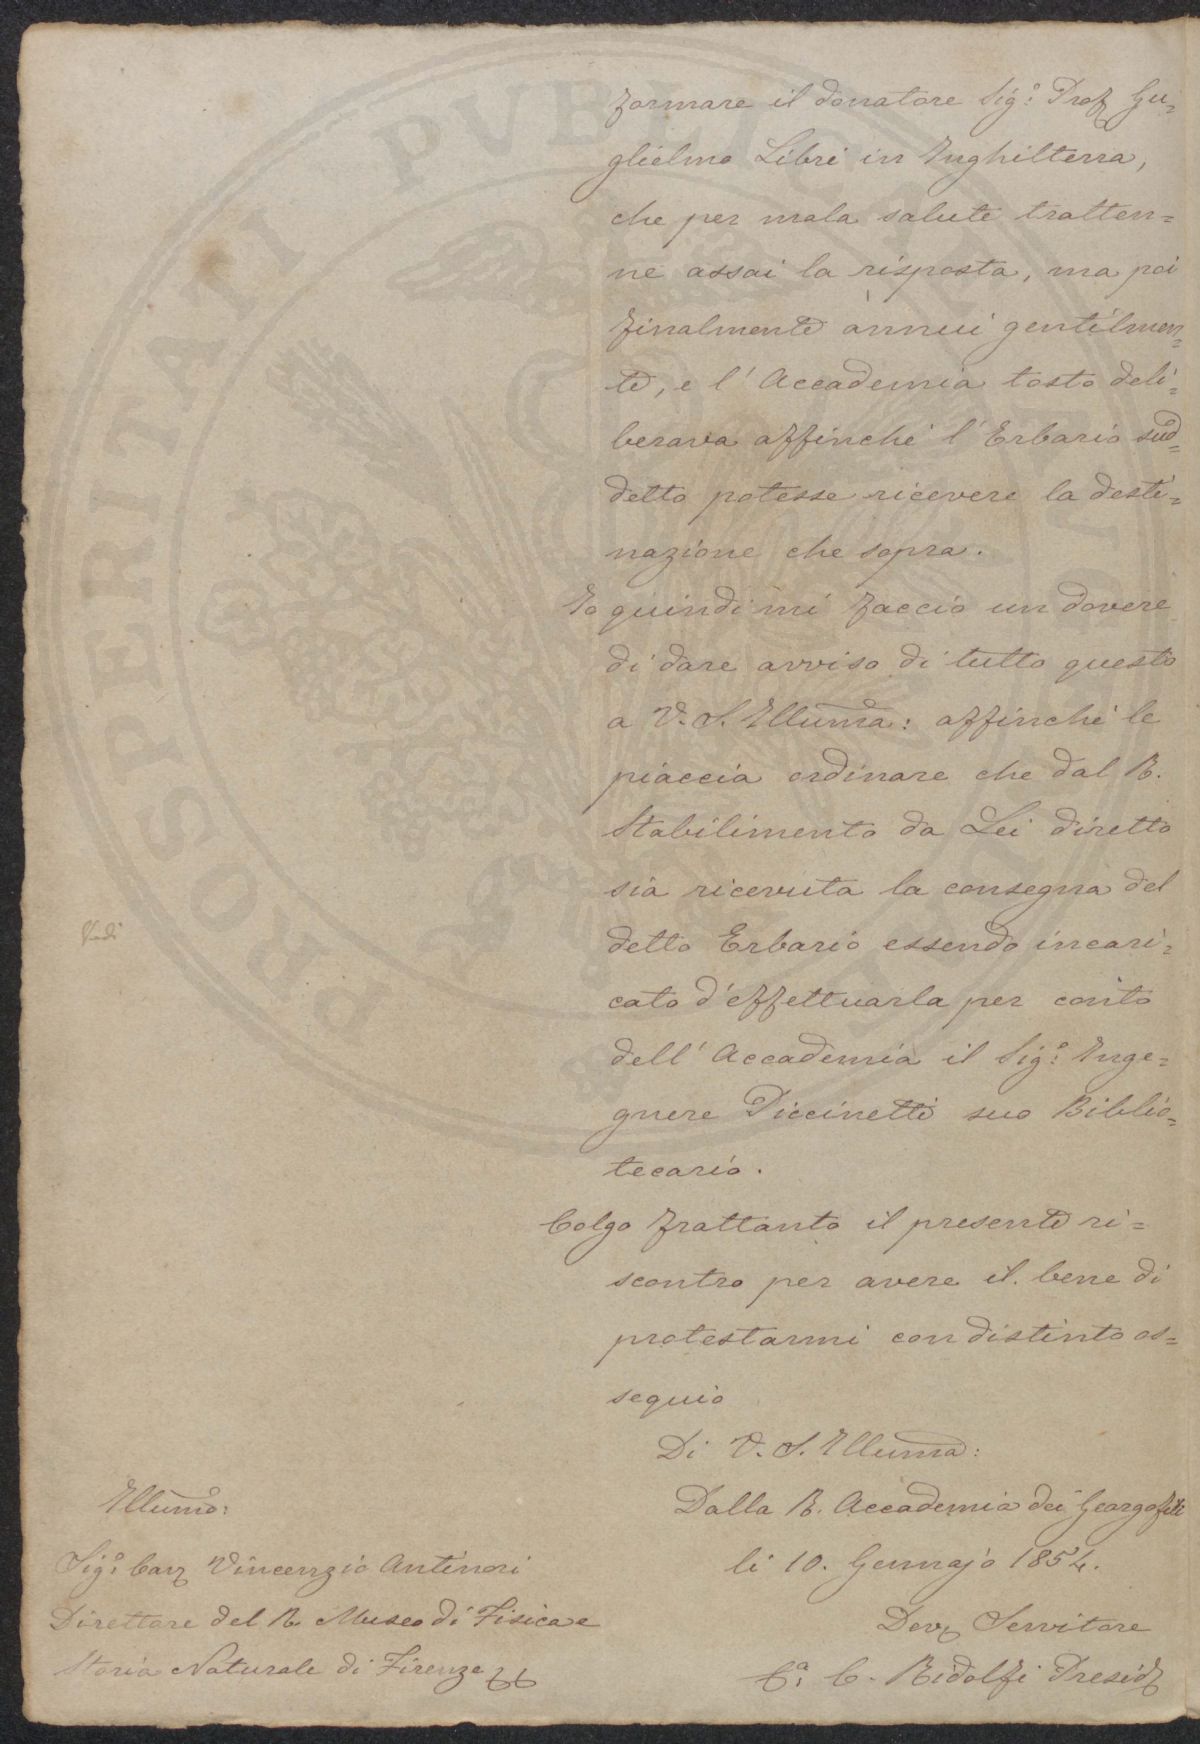 formare il donatore Sig.º Prof. Gu=
glielmo Libri in Inghilterra,
che per mala salute tratten=
ne assai la risposta, ma poi
finalmente annui gentilmen=
te, e l'Accademia tosto deli=
berava affinchè l'Erbario sud=
detto potesse ricevere la desti=
nazione che sopra.
Io quindi mi faccio un dovere
di dare avviso di tutto questo
a V. S. Illuma: affinchè le
piaccia ordinare che dal R.
Stabilimento da Lei diretto
sia ricevuta la consegna del
detto Erbario essendo incari=
cato d'effettuarla per conto
dell'Accademia il Sig.º Inge=
gnere Piccinetti suo Biblio=
tecario.
Colgo frattanto il presente ri=
scontro per avere il bene di
protestarmi con distinto os=
sequio
Di V. S. Illuma:
Dalla R. Accademia dei Georgofili
li 10. Gennajo 1854.
Dev. Servitore
C. Ridolfi Presid.
Vedi
Illumo:
Sig.º Cav. Vincenzio Antinori
Direttore del R. Museo di Fisica e
Storia Naturale di Firenze
PROSPERITATI PVBLICAE